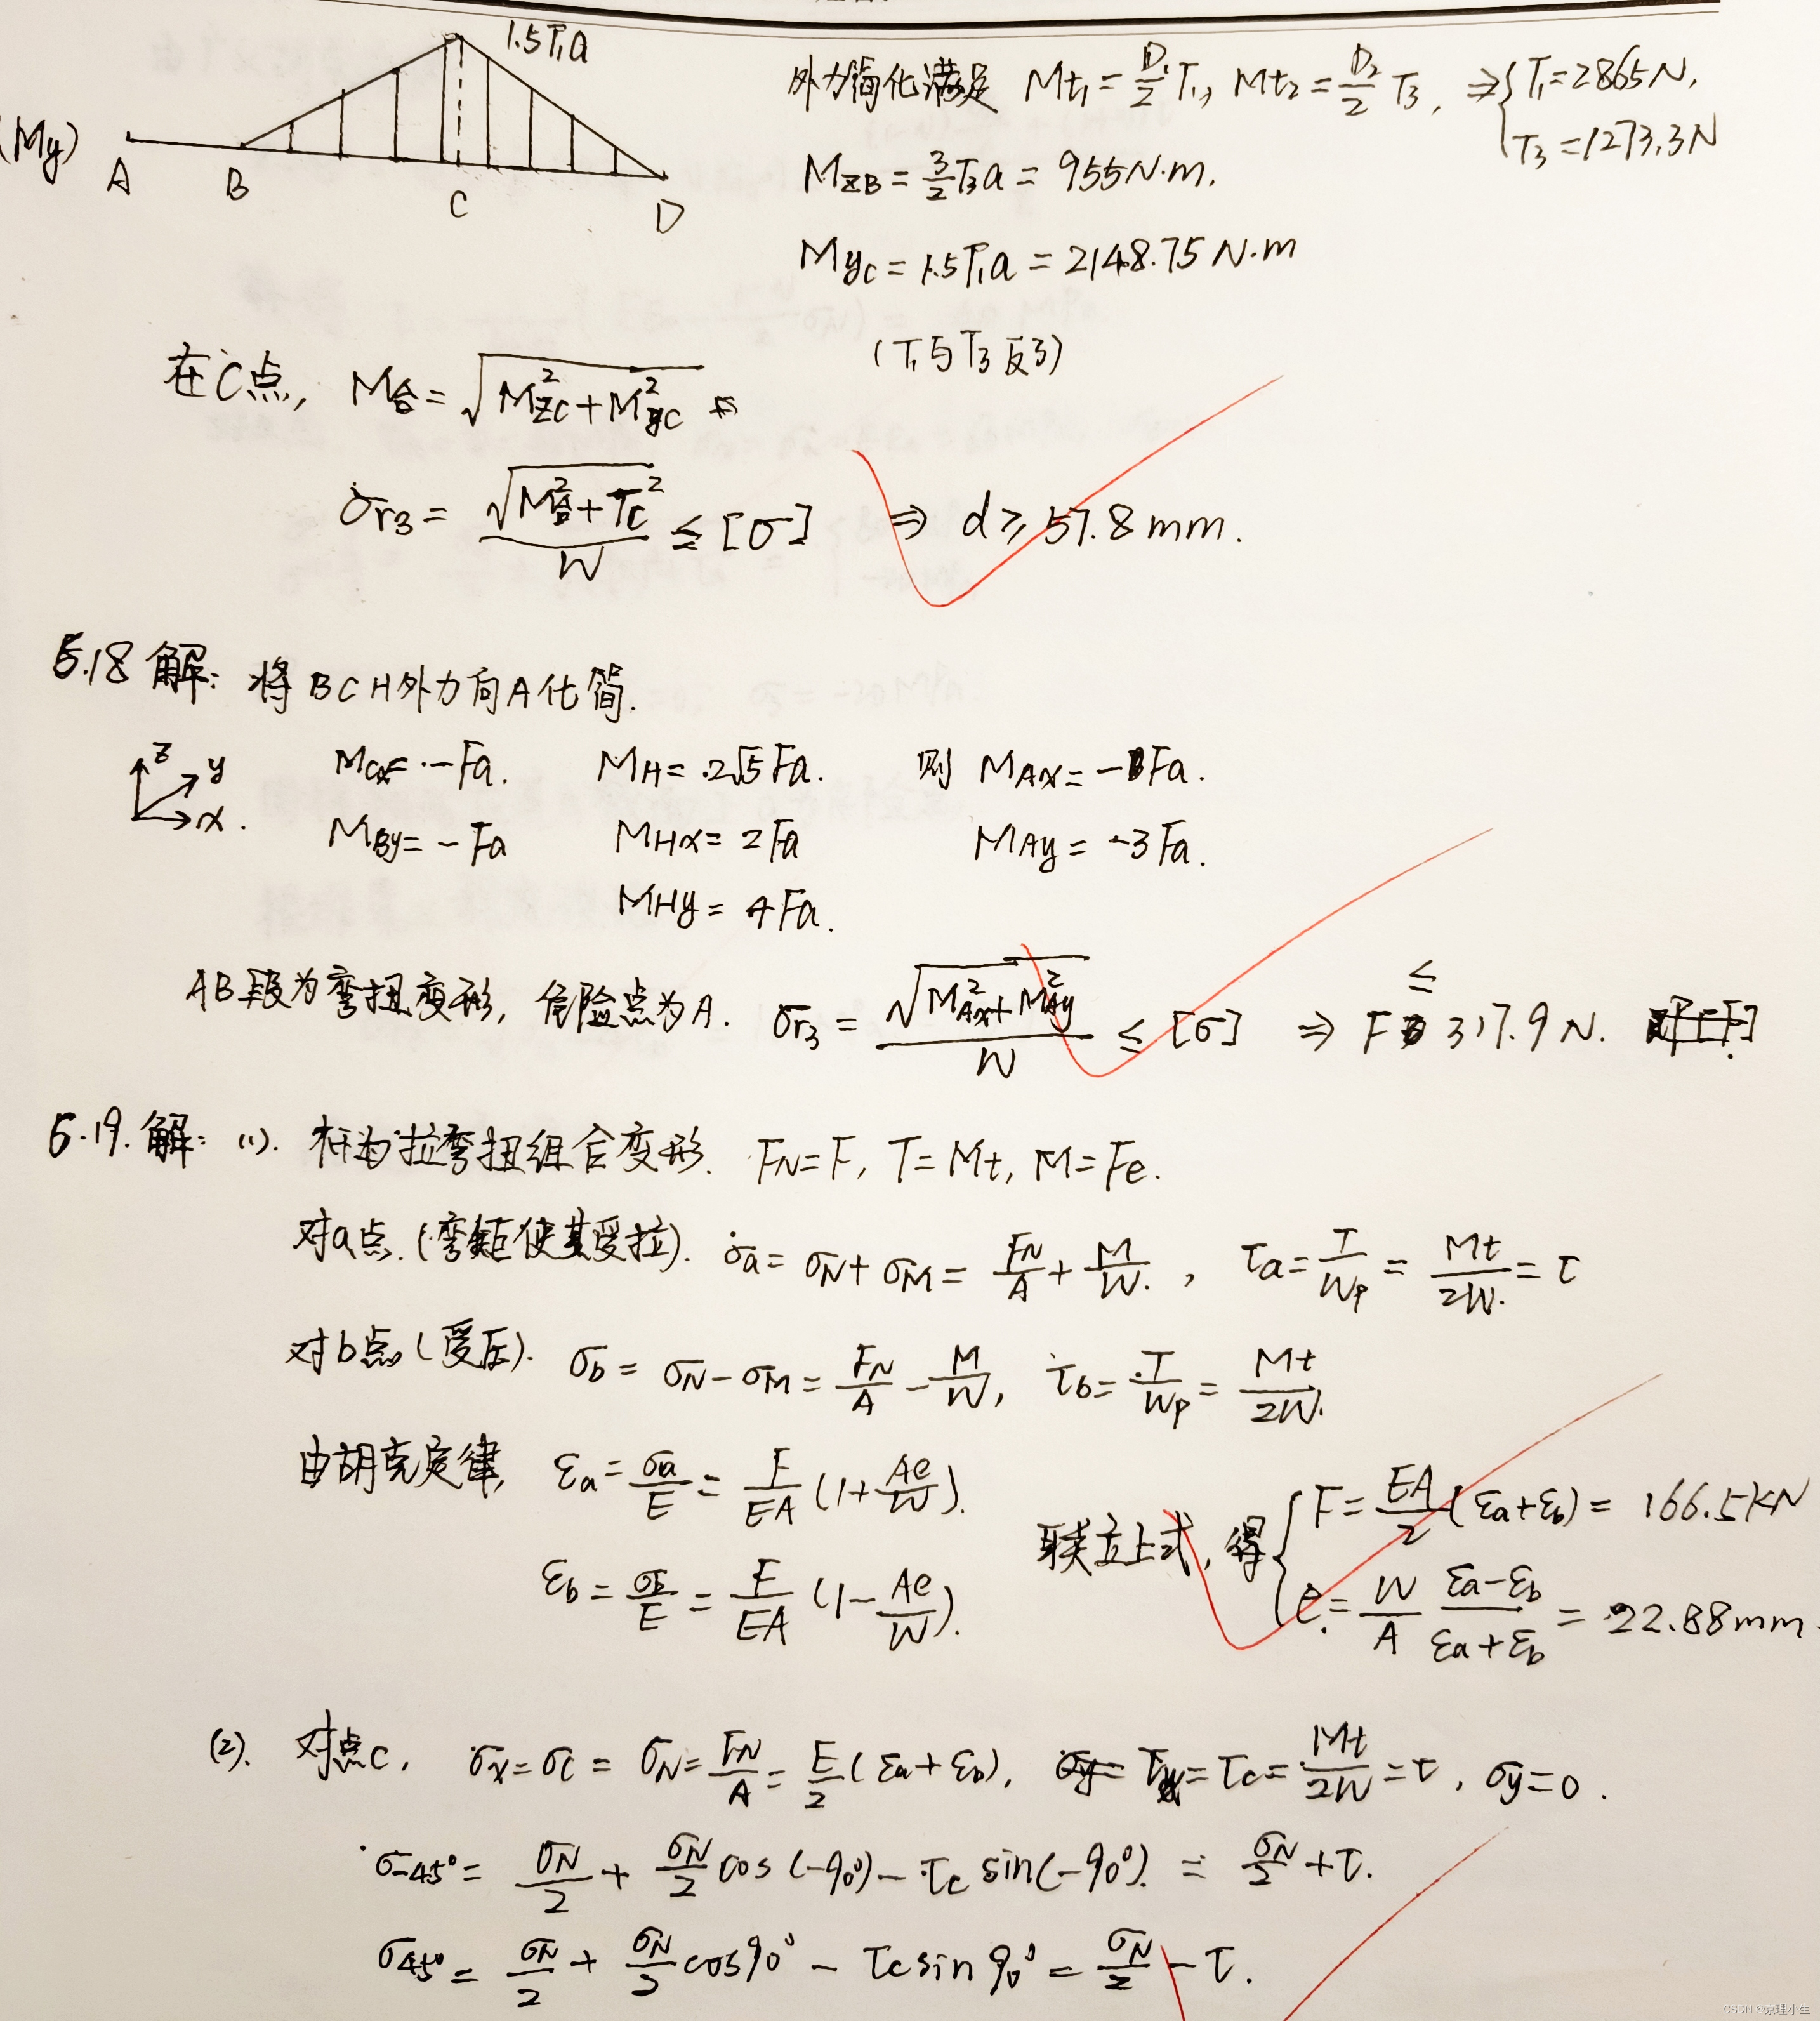 1.5T₁a
(My)
A B C D
外力简化满足 Mt₁=D₁/2 T₁, Mt₂=D₂/2 T₃, ⇒{T₁=2865N,
T₃=1273.3N
M_ZB=3/2 T₃a=955N·m.
M_yC=1.5T₁a=2148.75N·m
(T₁与T₃反了)
在C点, M合=√(M²_ZC+M²_yC)
σr₃=√(M²合+T_C²)/W≤[σ] ⇒ d≥57.8mm.
5.18解: 将BCH外力向A化简.
z y x.
M_Cx=-Fa. M_H=2√5Fa. 则 M_Ax=-Fa.
M_By=-Fa M_Hx=2Fa M_Ay=-3Fa.
M_Hy=4Fa.
AB段为弯扭变形, 危险点为A. σr₃=√(M²_Ax+M²_Ay)/W≤[σ] ⇒ F≤317.9N.
5.19.解: (1). 杆为拉弯扭组合变形. F_N=F, T=Mt, M=Fe.
对a点.(弯矩使其受拉). σa=σ_N+σ_M=F_N/A+M/W. , τa=T/Wp=Mt/2W.=τ
对b点(受压). σb=σ_N-σ_M=F_N/A-M/W, τb=T/Wp=Mt/2W.
由胡克定律, εa=σa/E=F/EA(1+Ae/W).
εb=σb/E=F/EA(1-Ae/W).
联立上式, 得{F=EA/2(εa+εb)=166.5kN
e=W/A (εa-εb)/(εa+εb)=22.88mm.
(2). 对点C, σx=σc=σ_N=F_N/A=E/2(εa+εb), τx=τc=Mt/2W=τ, σy=0.
σ-45°=σ_N/2+σ_N/2 cos(-90°)-τc sin(-90°)=σ_N/2+τ.
σ45°=σ_N/2+σ_N/2 cos90°-τc sin90°=σ_N/2-τ.
CSDN @京理小生